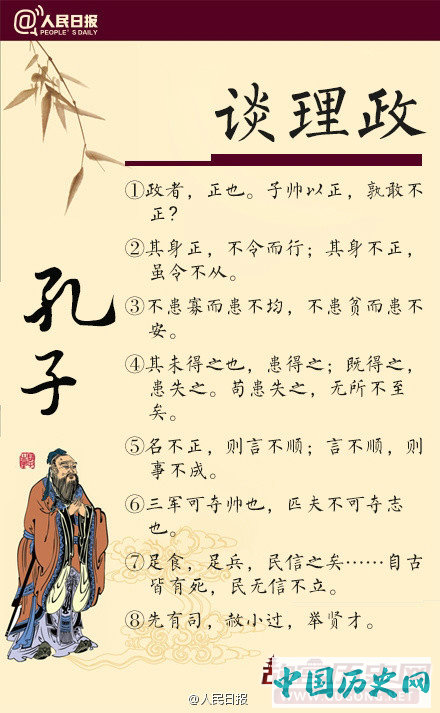 @人民日报
PEOPLE'S DAILY
谈理政
孔子
①政者，正也。子帅以正，孰敢不
正？
②其身正，不令而行；其身不正，
虽令不从。
③不患寡而患不均，不患贫而患不
安。
④其未得之也，患得之；既得之，
患失之。苟患失之，无所不至
矣。
⑤名不正，则言不顺；言不顺，则
事不成。
⑥三军可夺帅也，匹夫不可夺志
也。
⑦足食，足兵，民信之矣……自古
皆有死，民无信不立。
⑧先有司，赦小过，举贤才。
中国历史网
@人民日报